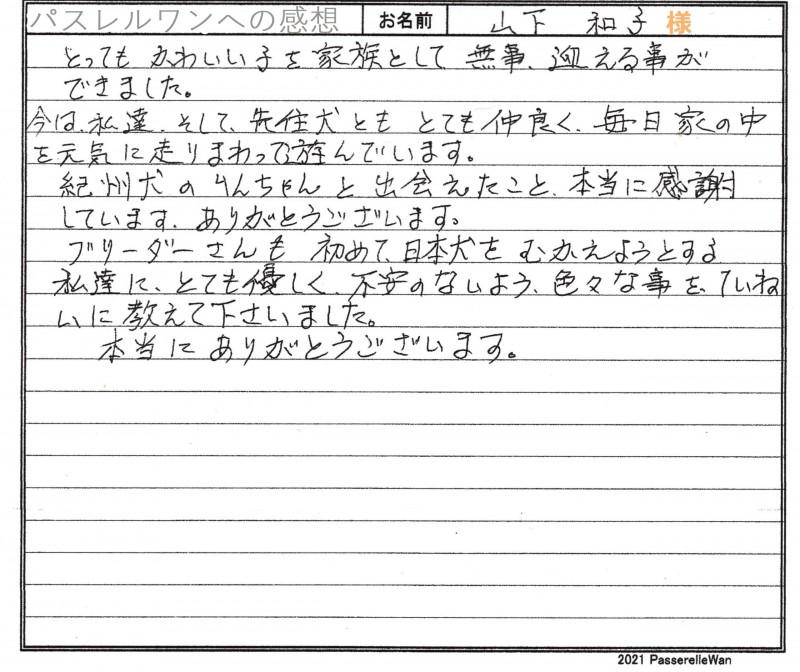 パスレルワンへの感想 お名前 山下 和子 様
とってもかわいい子を家族として無事、迎える事が
できました。
今は、私達、そして、先住犬とも とても仲良く、毎日家の中
を元気に走りまわって遊んでいます。
紀州犬のりんちゃんと出会えたこと、本当に感謝
しています。ありがとうございます。
ブリーダーさんも 初めて、日本犬を むかえようとする
私達に、とても優しく、不安のないよう、色々な事を、ていね
いに教えて下さいました。
本当にありがとうございます。
2021 PasserelleWan